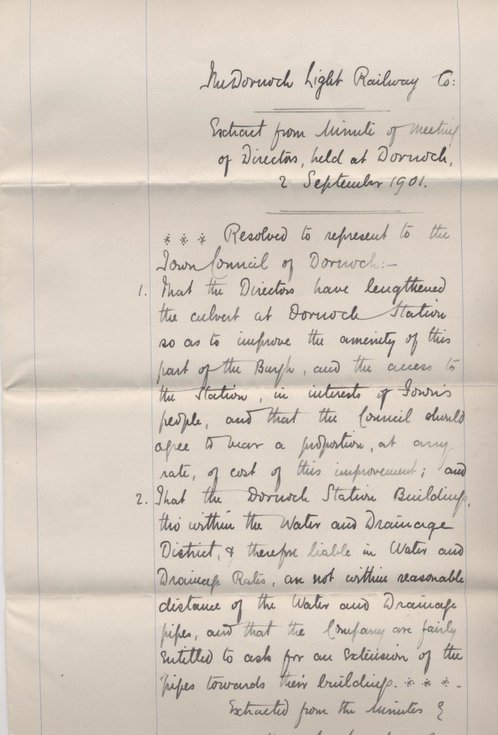 The Dornoch Light Railway Co:
Extract from Minute of Meeting
of Directors, held at Dornoch,
2 September 1901.
* * * Resolved to represent to the
Town Council of Dornoch:-
1. That the Directors have lengthened
the culvert at Dornoch Station
so as to improve the amenity of this
part of the Burgh, and the access to
the Station, in interests of Town's
people, and that the Council should
agree to bear a proportion, at any
rate, of cost of this improvement; and
2. That the Dornoch Station Building,
tho' within the Water and Drainage
District, & therefore liable in Water and
Drainage Rates, are not within reasonable
distance of the Water and Drainage
pipes, and that the Company are fairly
entitled to ask for an Extension of the
pipes towards their building. * * *
Extracted from the Minutes &